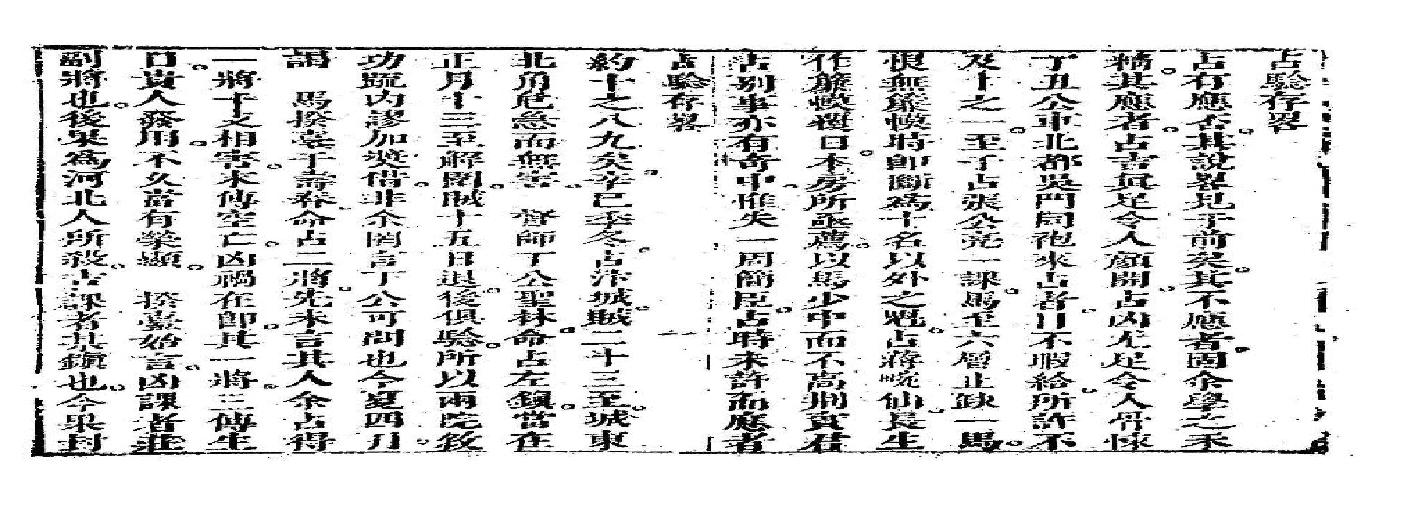 占驗存畧
占有應否其說畧見于前矣其不應者固余學之未
精其應者占吉眞足令人顏開占凶尤足令人骨悚
丁丑公車北都吳門同袍來占者日不暇給所許不
及十之一至于占張公亮一課馬至六層止缺一馬
恨無簾幙時卽斷爲十名以外之魁占蔣晄仙長生
作簾幙還日本房所亟薦以馬少中而不高荆實君
占别事亦有奇中惟失一周簡臣占時未許而應者
占驗存畧
約十之八九矣辛巳季冬占汴城賊二十三至城東
北角危急而無害 督師丁公聖林命占左鎭當在
正月十三至解開賊十五日退後俱驗所以兩院敘
功疏內謬加奬借非余罔言丁公可問也今夏四月
謁 馬撫臺于壽春命占二將先未言其人余占得
一將干支相害末傳空亡凶禍在卽其一將三傳生
日貴人發用不久當有榮顯 撫臺始言凶課者莊
副將也後果爲河北人所殺吉課者某鎭也今果封